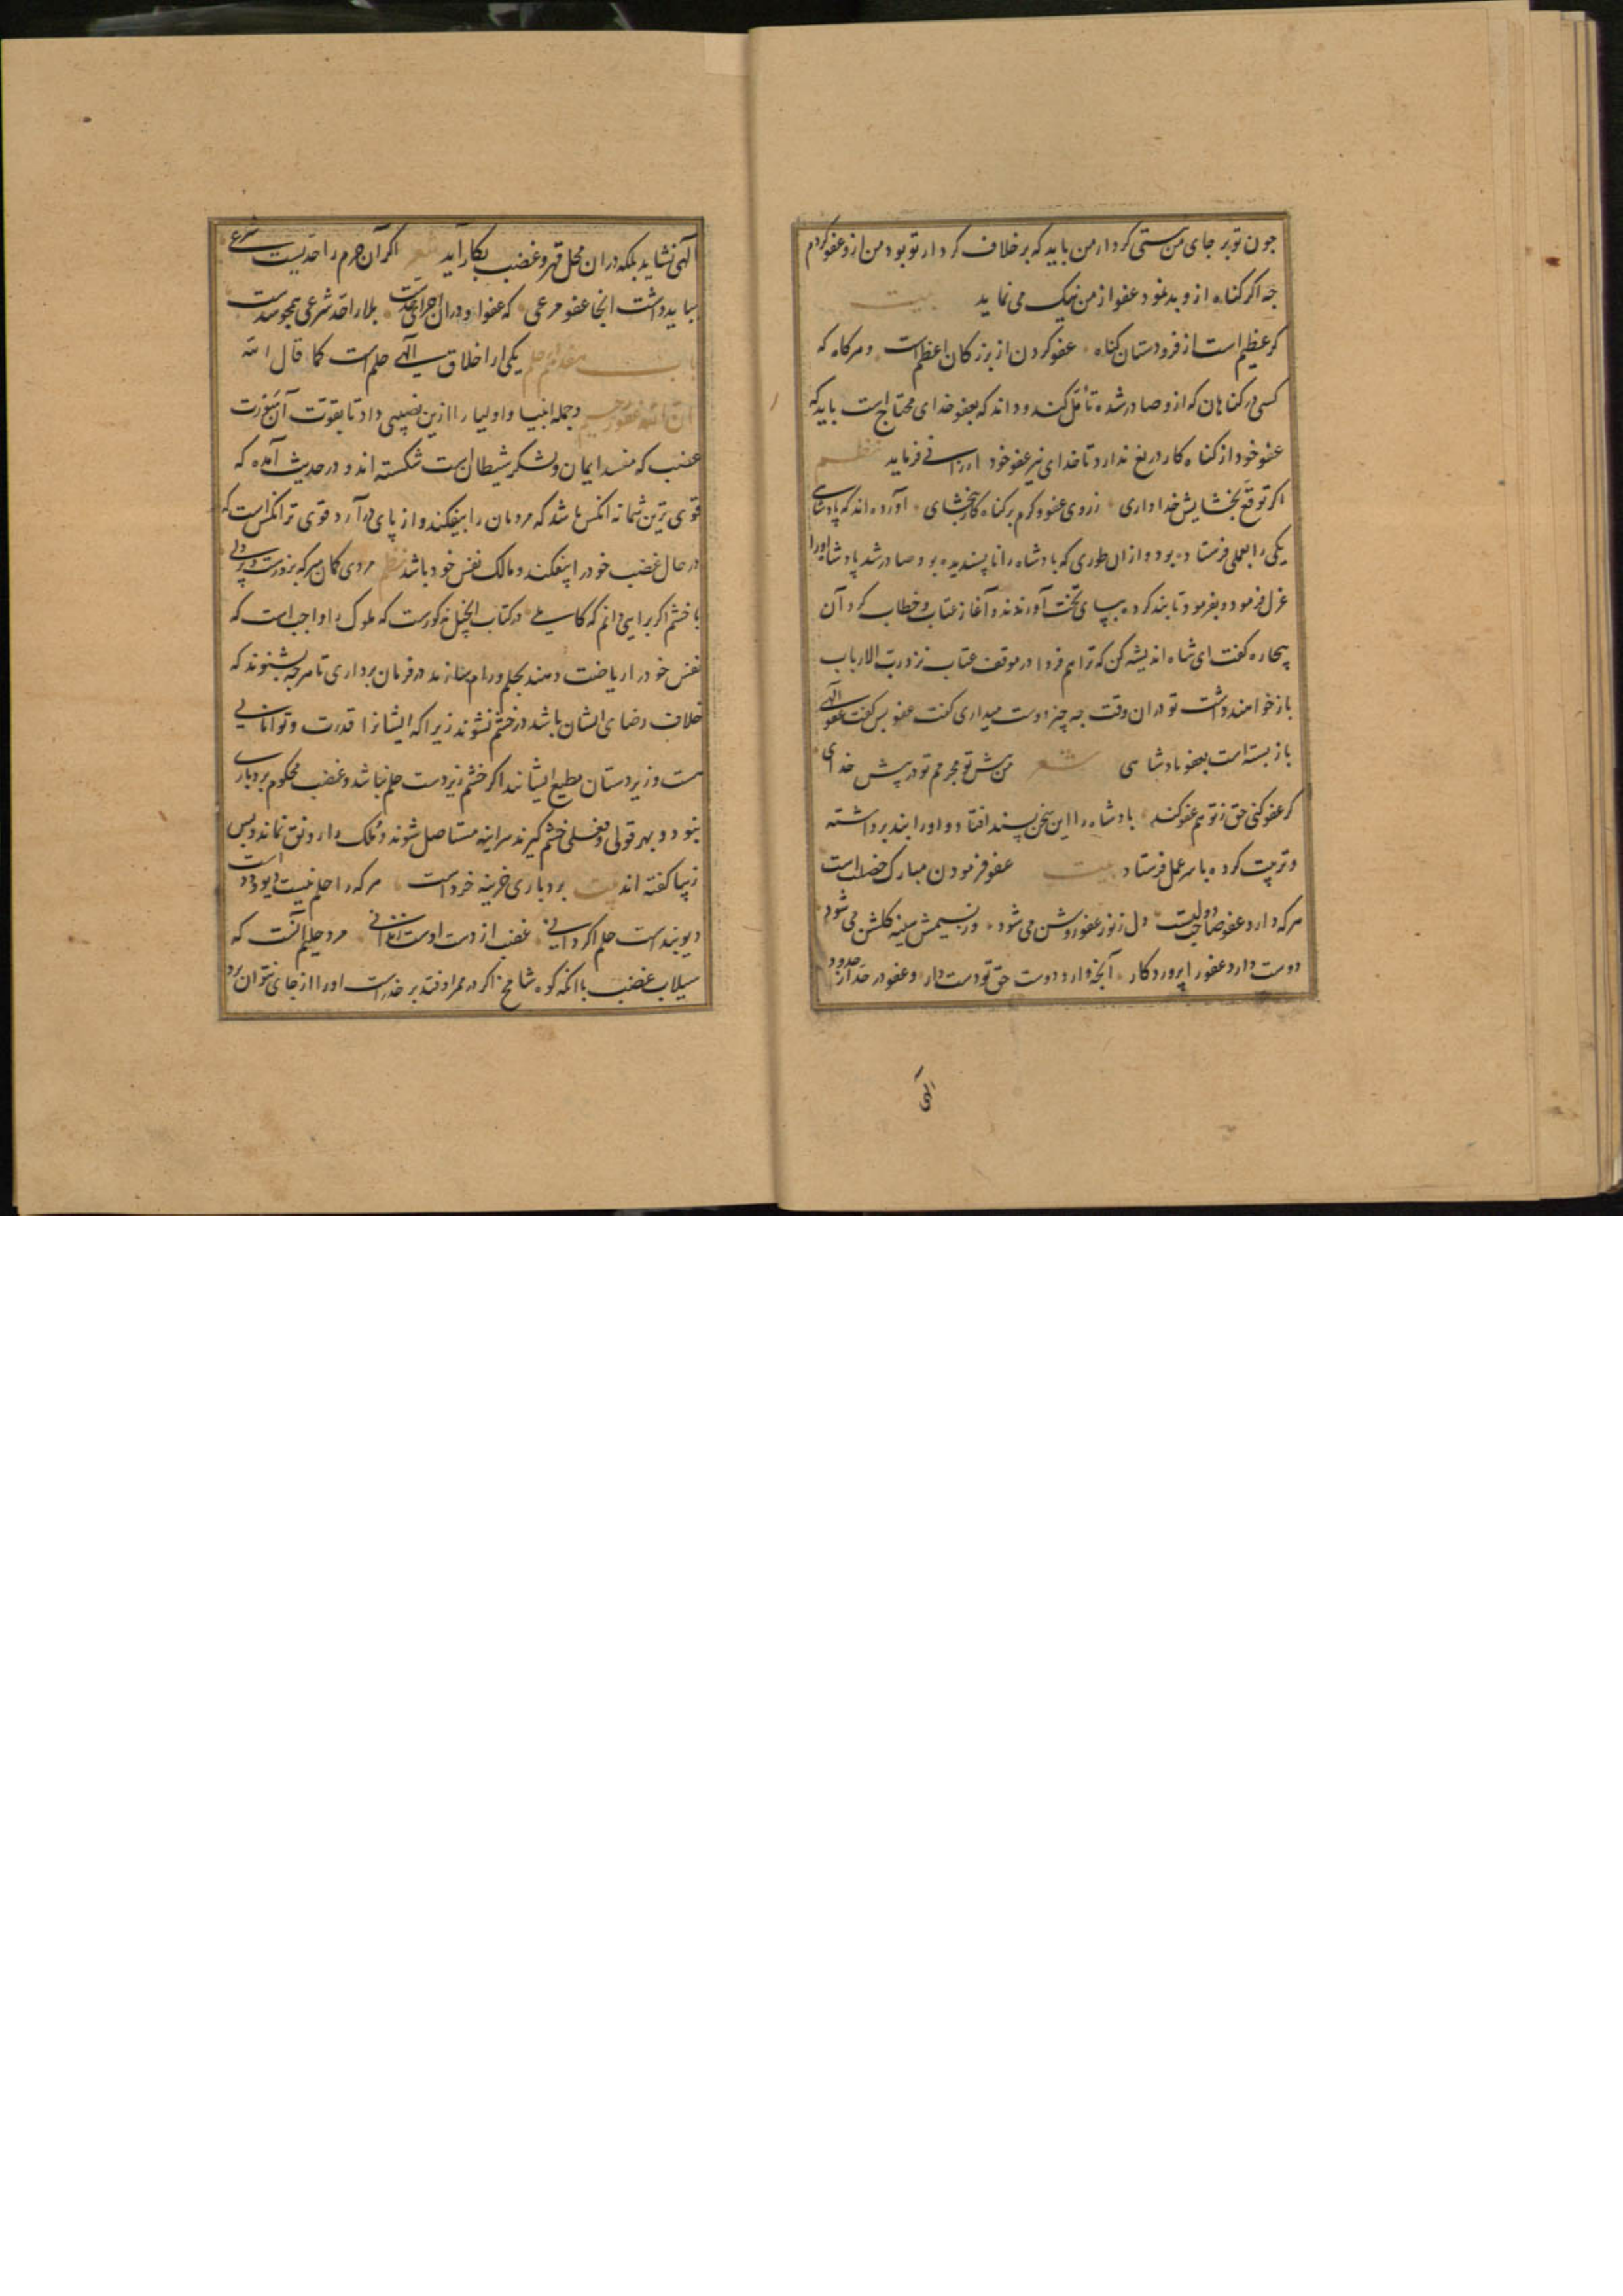 چون تو بر جای من ستی کردار من باید که بر خلاف کردار تو بود من ازو عفو کردم
چه اکر کناه ازو بد نمود عفو از من نیک می نماید بیت
کر عظیم است از فرودستان کناه عفو کردن از بزرکان اعظم است و هرکاه که
کسی در کناهان که ازو صادر شده تأمل کند و داند که بعفو خدای محتاج است باید که
عفو خود از کناه کار دریغ ندارد تا خدای نیز عفو خود ارزانی فرماید نظم
اکر توقع بخشایش خدا داری ز روی عفو و کرم بر کناه کار بخشای آورده اند که پادشاهی
یکی را بعملی فرستاده بود و ازان طوری که پادشاه را ناپسندیده بود صادر شد پادشاه اورا
عزل فرمود و بفرمود تا بند کرده بپای تخت آوردند و آغاز عتاب و خطاب کرد آن
بیچاره کفت ای شاه اندیشه کن که ترا هم فردا در موقف عتاب نزد رب الارباب
باز خواهند داشت تو دران وقت چه چیز دوست میداری کفت عفو پس کفت عفو الهی
باز بسته است بعفو پادشاهی شعر من پیش تو مجرمم تو در پیش خدای
کر عفو کنی حق ز تو هم عفو کند پادشاه را این سخن پسند افتاد و اورا بند برداشته
و تربیت کرده باسر عمل فرستاد بیت عفو فرمودن مبارک خصلت است
هرکه دارد عفو صاحب دولت دل ز نور عفو روشن می شود وز نسیمش سینه کلشن می شود
دوست دارد عفو را پروردکار آنچه دارد دوست حق تو دوست دار و عفو در حد از حدود
الهی
الهی نشاید بلکه دران محل قهر و غضب بکار آید شعر اکر آن جرم را حدیست شرعی
بباید داشت انجا عفو مرعی که عفو او دران اجرای حدست بلا را حد شرعی همچو سدست
باب هفدهم حلم یکی از اخلاق الهی حلم است کما قال الله
ان الله غفور حلیم و جمله انبیا و اولیا را ازین نصیبی داد تا بقوت آن سورت
غضب که مفسد ایمان و لشکر شیطان است شکسته اند و در حدیث آمده که
قوی ترین شما نه انکس باشد که مردمان را بیفکند و از پای در آرد قوی تر انکس است که
در حال غضب خود را بیفکند و مالک نفس خود باشد نظم مردی کمان مبر که بزورست و پر دلی
با خشم اکر برایی دانم که کاملی در کتاب انجیل مذکورست که ملوک را واجب است که
نفس خود را ریاضت دهند بحلم و رام سازند در فرمان برداری تا هرچه بشنوند که
خلاف رضای ایشان باشد در خشم نشوند زیرا که ایشانرا قدرت و توانایی
هست و زیردستان مطیع ایشانند اکر خشم زیردست حلم نباشد و غضب محکوم بردباری
نبود و بهر قولی و فعلی خشم کیرند هراینه مستاصل شوند و ملک را رونق نماند و پس
زیبا کفته اند بیت بردباری خزینه خردست هرکه را حلم نیست دیو و ددست
دیو بندست حلم اکر دانی غضب از دست اوست زندانی مرد حلیم آنست که
سیلاب غضب با انکه کوه شامخ اکر در ممر او فتد بر خدر است اورا از جای نتواند برد